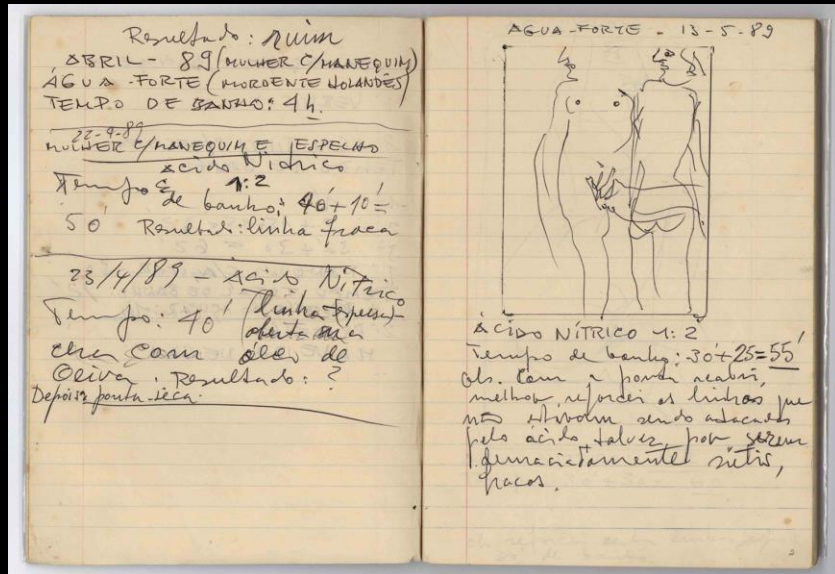 Resultado: ruim
ABRIL - 89 (MULHER C/MANEQUIM)
ÁGUA-FORTE (MORDENTE HOLANDÊS)
TEMPO DE BANHO: 4h.
22-4-89
MULHER C/MANEQUIM E ESPELHO
ácido Nítrico
Tempo 1:2
de banho: 40'+10'=
50' Resultado: linha fraca
23/4/89 - Ácido Nítrico
Tempo: 40' (linha espessa)-
aberta na
cera com óleo de
Oliva. Resultado: ?
Depois ponta-seca.
ÁGUA-FORTE - 13-5-89
ÁCIDO NÍTRICO 1:2
Tempo de banho: 30'+25=55'
Obs. Com a ponta reabri,
melhor, reforcei as linhas que
não estavam sendo atacadas
pelo ácido, talvez, por serem
demaciadamente sutis,
fracas.
2